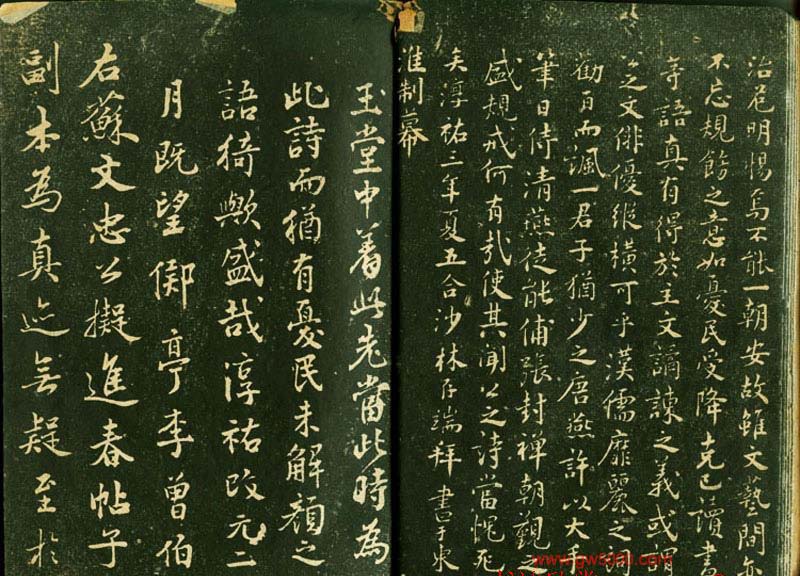 治危明惕焉不能一朝安故雖文藝間亦
不忘規飭之意如憂民受降克己讀書
等語真有得於主文譎諫之義或
之文俳優縱橫可乎漢儒靡麗之
勸百而諷一君子猶少之唐燕許以大
筆日侍清燕徒能鋪張封禪朝覲之
盛規戒何有哉使其聞公之詩當愧死
矣淳祐三年夏五合沙林存端拜書于東
淮制幕
玉堂中著此先當此時為
此詩而猶有憂民未解顏之
語猗歟盛哉淳祐改元二
月既望鄮亭李曾伯
右蘇文忠公擬進春帖子
副本為真迹無疑至於